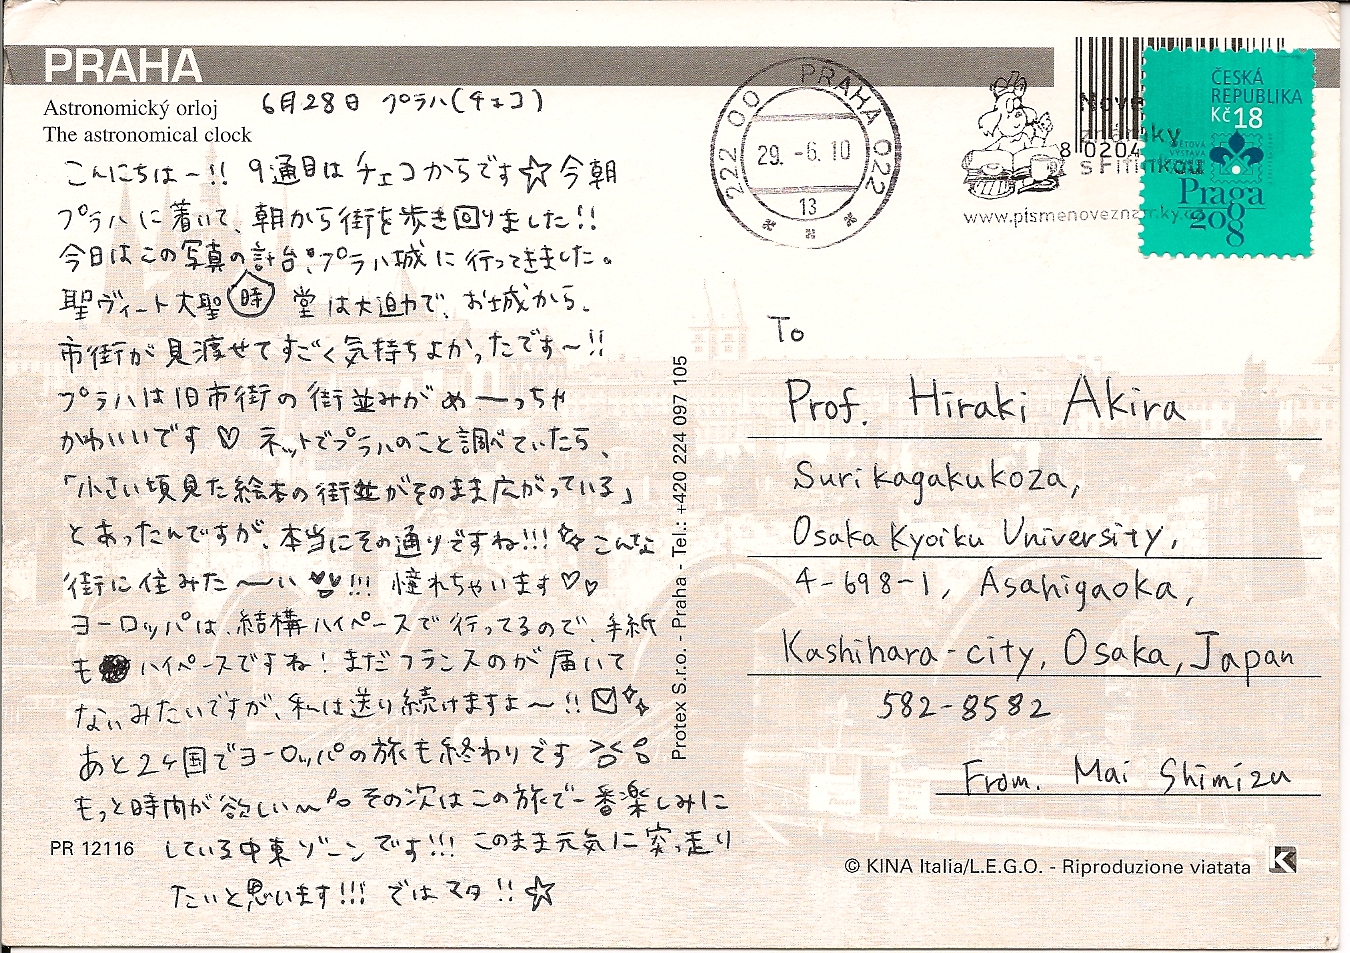 PRAHA
Astronomický orloj
The astronomical clock
6月28日 プラハ(チェコ)
こんにちは〜!! 9通目はチェコからです☆今朝
プラハに着いて、朝から街を歩き回りました!!
今日はこの写真の時計台とプラハ城に行ってきました。
聖ヴィート大聖堂は大迫力で、お城から、
市街が見渡せてすごく気持ちよかったです〜!!
プラハは旧市街の街並みがめーっちゃ
かわいいです♡ ネットでプラハのこと調べていたら、
「小さい頃見た絵本の街並がそのまま広がっている」
とあったんですが、本当にその通りですね!!! こんな
街に住みた〜い!!! 憧れちゃいます♡♡
ヨーロッパは、結構ハイペースで行ってるので、手紙
もハイペースですね! まだフランスのが届いて
ないみたいですが、私は送り続けますよ〜!!
あと2ヶ国でヨーロッパの旅も終わりです
もっと時間が欲しい〜 その次はこの旅で一番楽しみに
している中東ゾーンです!!! このまま元気に突っ走り
たいと思います!!! ではマタ!!☆
PR 12116
Protex S.r.o. - Praha - Tel.: +420 224 097 105
222 00 PRAHA 022
29. -6. 10
13
Nové
známky
s Fifinkou
www.pismenoveznamky.cz
8 0204
ČESKÁ
REPUBLIKA
Kč 18
SVĚTOVÁ
VÝSTAVA
Praga
2008
To
Prof. Hiraki Akira
Surikagakukoza,
Osaka Kyoiku University,
4-698-1, Asahigaoka,
Kashihara-city, Osaka, Japan
582-8582
From. Mai Shimizu
© KINA Italia/L.E.G.O. - Riproduzione viatata
K